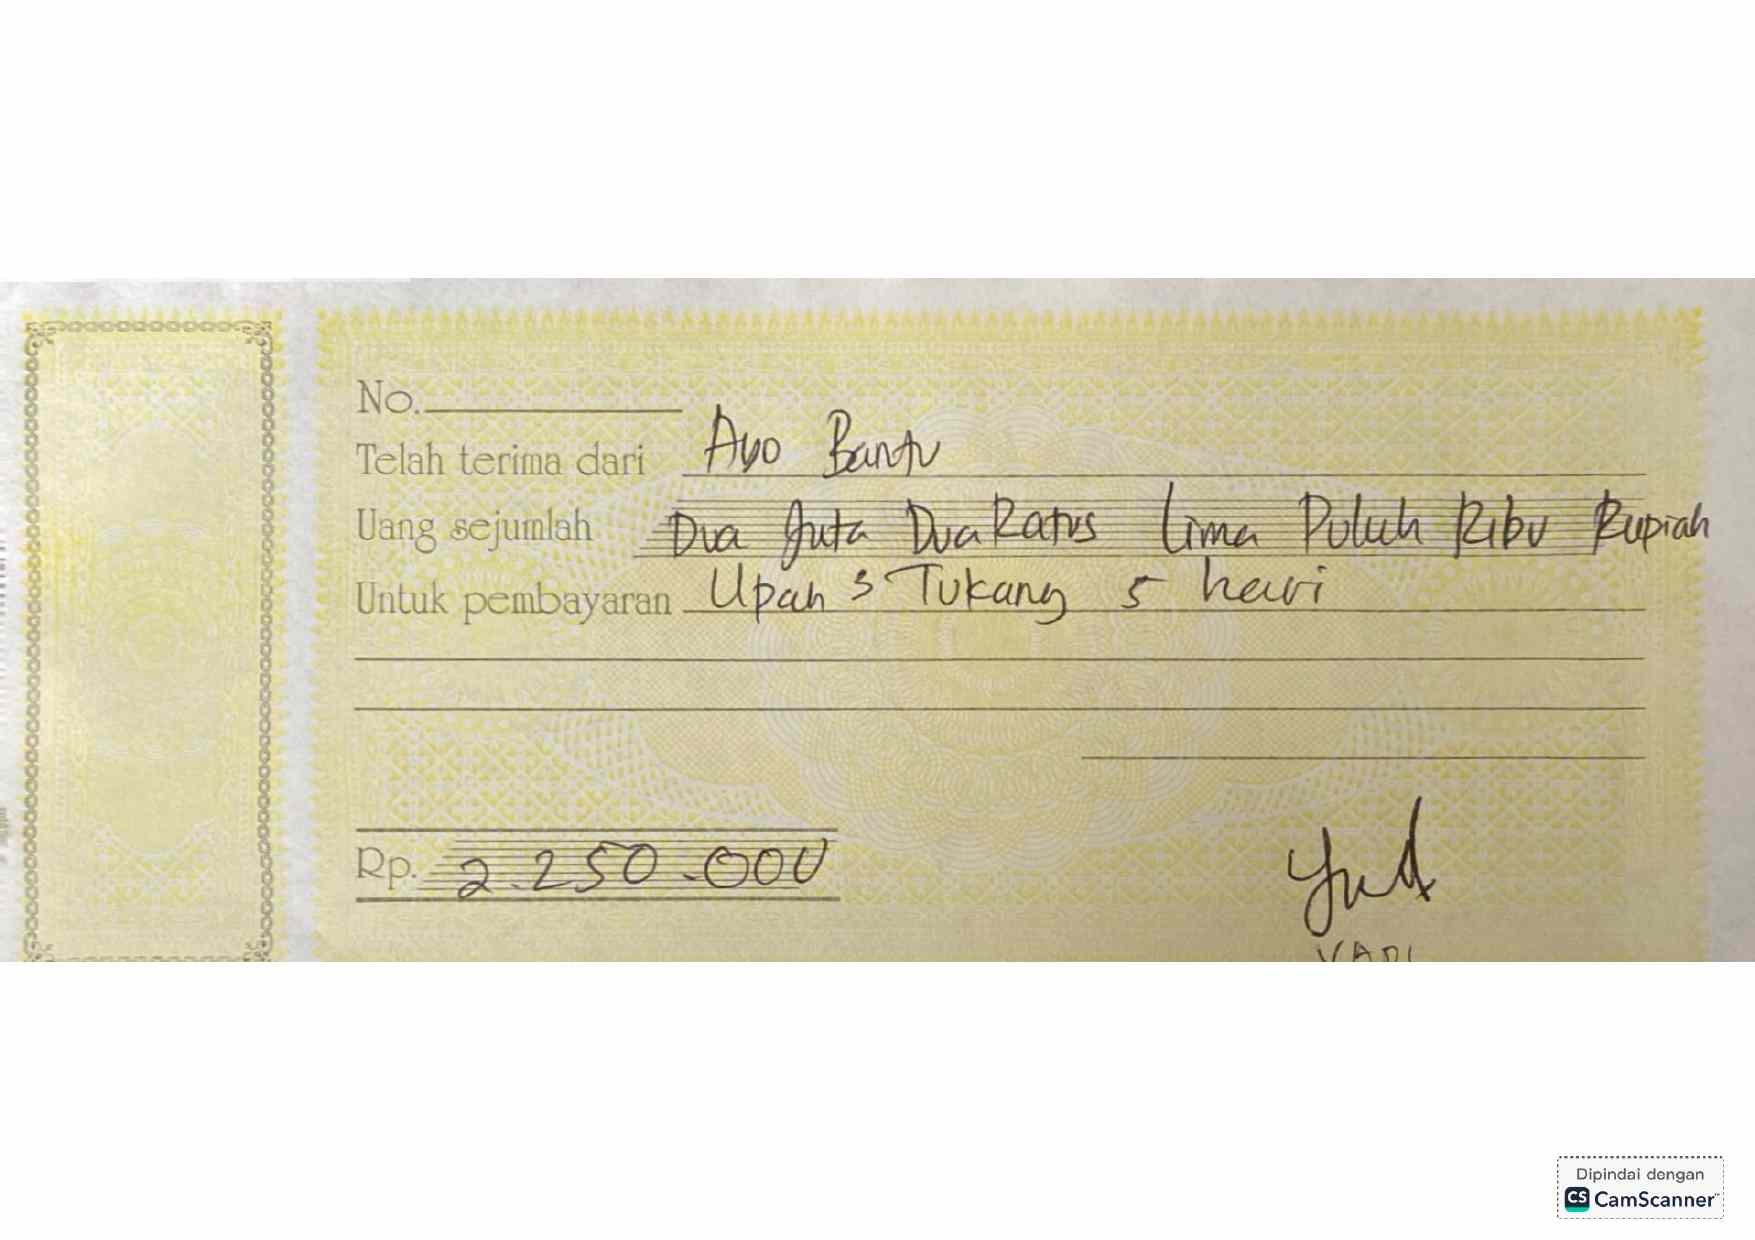 No.
Telah terima dari Ayo Bantu
Uang sejumlah Dua Juta Dua Ratus Lima Puluh Ribu Rupiah
Untuk pembayaran Upah 3 Tukang 5 hari
Rp. 2.250.000
Dipindai dengan
CS CamScanner